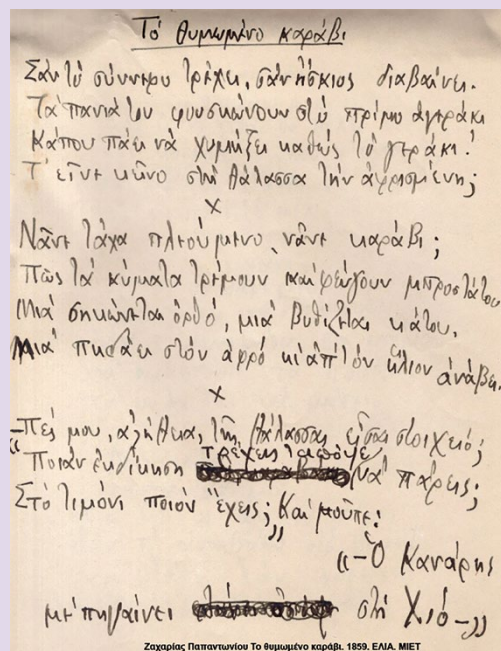 Τό θυμωμένο καράβι
Σάν τό σύννεφο τρέχει, σάν ἥσκιος διαβαίνει.
Τά πανιά του φουσκώνουν στό πρίμο ἀγεράκι
Κάπου πάει νά χυμήξει καθώς τό γεράκι!
Τ' εἶνε κεῖνο στή θάλασσα τήν ἀφρισμένη;
×
Νἆνε τάχα πλεούμενο, νἆνε καράβι;
Πῶς τά κύματα τρέμουν καί φεύγουν μπροστά του
Μιά σηκώνεται ὀρθό, μιά βυθίζεται κάτου,
Μιά πηδάει στόν ἀφρό κι ἀπ' τόν ἥλιον ἀνάβει.
×
«–Πές μου, ἀλήθεια, τῆς θάλασσας εἶσαι στοιχειό;
τρέχεις
Ποιάν ἐκδίκηση νά πάρεις;
Στό τιμόνι ποιόν ἔχεις;» Καί μοὖπε:
«–Ὁ Κανάρης
μέ πηγαίνει στή Χιό–»
Ζαχαρίας Παπαντωνίου Το θυμωμένο καράβι. 1859. ΕΛΙΑ. ΜΙΕΤ